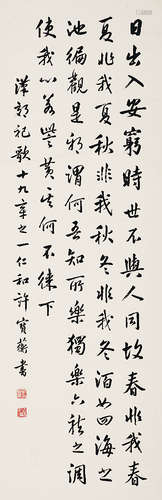 日出入安窮時世不與人同故春非我春
夏非我夏秋非我秋冬非我冬泊如四海之
池徧觀是邪謂何吾知所樂獨樂六龍之調
使我心若訾黃其何不徠下
漢郊祀歌十九章之一仁和許寶蘅書